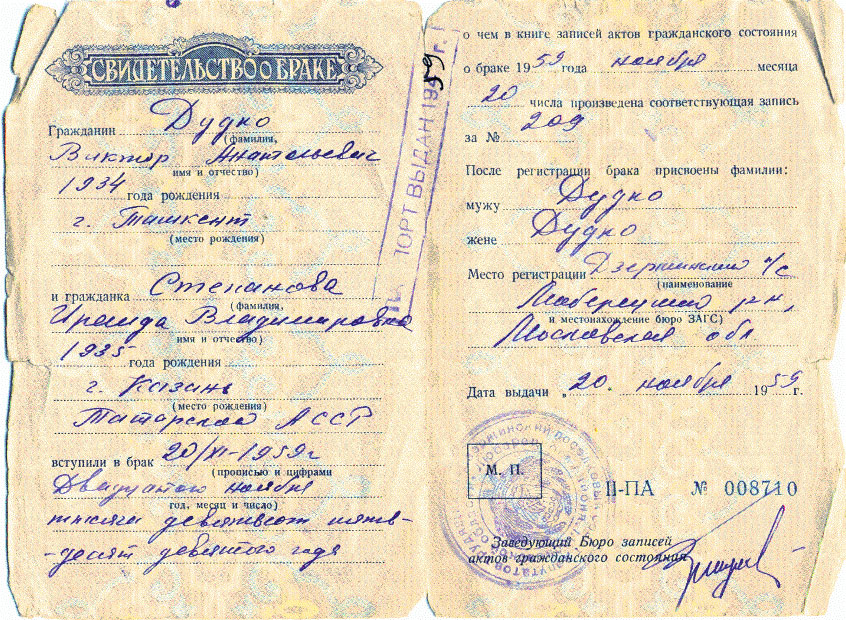 СВИДЕТЕЛЬСТВО О БРАКЕ
Гражданин Дудко
(фамилия,
Виктор Анатольевич
имя и отчество)
1934 года рождения
г. Ташкент
(место рождения)
и гражданка Степанова
(фамилия,
Ираида Владимировна
имя и отчество)
1935 года рождения
г. Казань
(место рождения)
Татарской АССР
вступили в брак 20/XI-1959г
(прописью и цифрами
Двадцатого ноября
год, месяц и число)
тысяча девятьсот пять-
-десят девятого года
ПОРТ ВЫДАН 1959 г.
о чем в книге записей актов гражданского состояния
о браке 1959 года ноября месяца
20 числа произведена соответствующая запись
за № 209
После регистрации брака присвоены фамилии:
мужу Дудко
жене Дудко
Место регистрации Дзержинский п/с
(наименование
Люберецкий р-н,
и местонахождение бюро ЗАГС)
Московская обл
Дата выдачи „20. ноября 1959 г.
М. П.
II-ПА № 008710
Заведующий Бюро записей
актов гражданского состояния